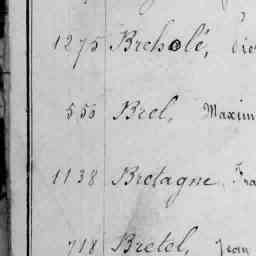 1275 Breholé,
555 Brel, Maxim
1138 Bretagne, Fra
718 Bretel, Jean